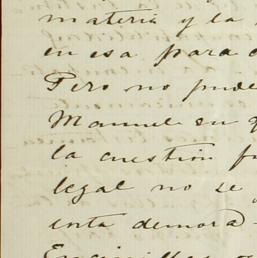 materia y la
en esa para
Pero no pude
Manuel su
la cuestion
legal no se
esta demora